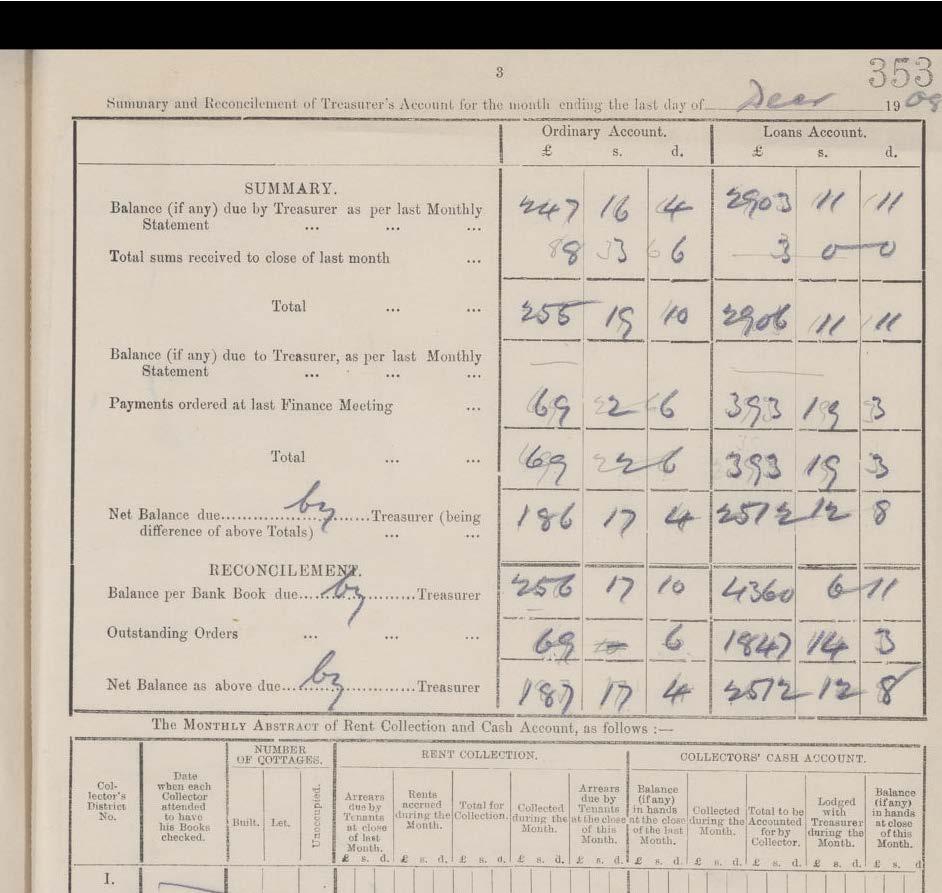 353
3
Summary and Reconcilement of Treasurer's Account for the month ending the last day of Decr 1908
Ordinary Account. Loans Account.
£ s. d. £ s. d.
SUMMARY.
Balance (if any) due by Treasurer as per last Monthly
Statement ... ... ... 247 16 4 2903 11 11
Total sums received to close of last month ... 8 3 6 3 0 0
Total ... ... 255 19 10 2906 11 11
Balance (if any) due to Treasurer, as per last Monthly
Statement ... ... ... — —
Payments ordered at last Finance Meeting ... 69 2 6 393 19 3
Total ... ... 69 2 6 393 19 3
Net Balance due by Treasurer (being 186 17 4 2512 12 8
difference of above Totals) ... ...
RECONCILEMENT.
Balance per Bank Book due by Treasurer 256 17 10 4360 6 11
Outstanding Orders ... ... ... 69 6 1847 14 3
Net Balance as above due by Treasurer 187 17 4 2512 12 8
The MONTHLY ABSTRACT of Rent Collection and Cash Account, as follows :—
NUMBER OF COTTAGES. RENT COLLECTION. COLLECTORS' CASH ACCOUNT.
Collector's District No.
Date when each Collector attended to have his Books checked.
Built.
Let.
Unoccupied.
Arrears due by Tenants at close of last Month.
Rents accrued during the Month.
Total for Collection.
Collected during the Month.
Arrears due by Tenants at the close of this Month.
Balance (if any) in hands at the close of the last Month.
Collected during the Month.
Total to be Accounted for by Collector.
Lodged with Treasurer during the Month.
Balance (if any) in hands at close of this Month.
£ s. d. £ s. d. £ s. d. £ s. d. £ s. d. £ s. d. £ s. d. £ s. d. £ s. d. £ s. d
I.